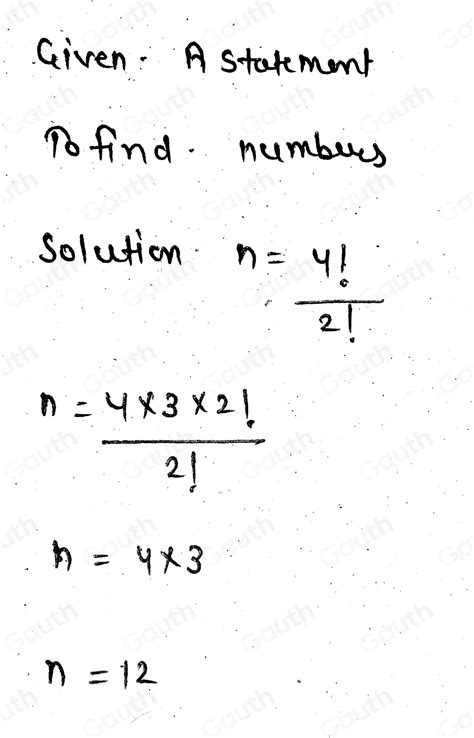 Given. A statement
To find. numbers
Solution. n = 4!
2!
n = 4×3×2!
2!
n = 4×3
n = 12